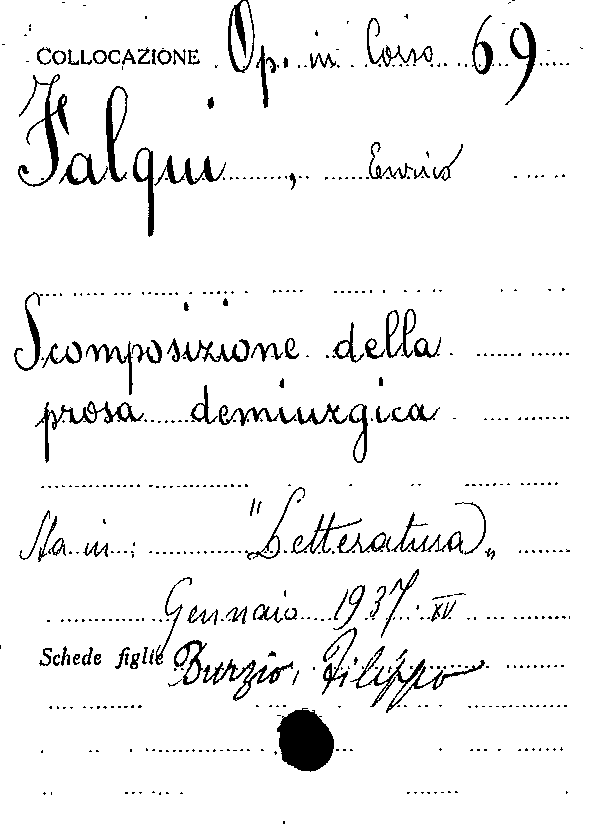 COLLOCAZIONE Op. in Corso 69
Falqui, Enrico
Scomposizione della
prosa demiurgica
Sta in: "Letteratura"
Gennaio 1937. XV
Schede figlie Burzio, Filippo